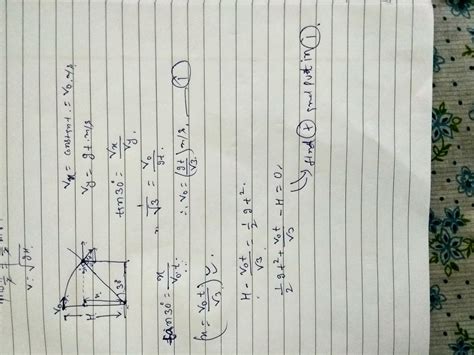 Vx = constant = V0 m/s
Vy = gt m/s
tan30° = Vx/Vy
1/√3 = V0/gt
∴ V0 = (gt/√3) m/s ——— ①
V0
H
x
30°
tan30° = x/V0.t
(x = V0t/√3)
H - V0t/√3 = 1/2 gt².
1/2 gt² + V0t/√3 - H = 0
↳ find (t) and put in ①